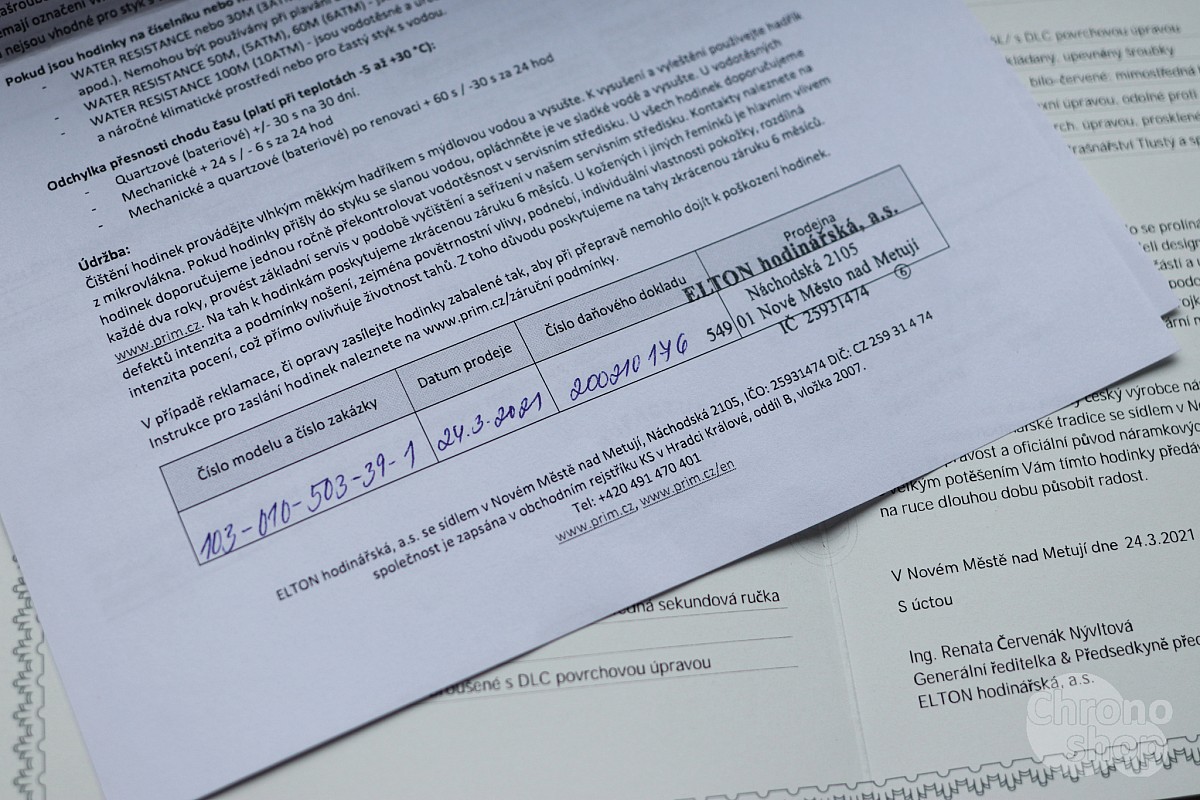 emají označení v
nejsou vhodné pro styk s
Pokud jsou hodinky na číselníku nebo
- WATER RESISTANCE nebo 30M (3AT
apod.). Nemohou být používány při plavání
- WATER RESISTANCE 50M, (5ATM), 60M (6ATM) - jso
- WATER RESISTANCE 100M (10ATM) - jsou vodotěsné a ur
a náročné klimatické prostředí nebo pro častý styk s vodou.
Odchylka přesnosti chodu času (platí při teplotách -5 až +30 °C):
- Quartzové (bateriové) +/- 30 s na 30 dní.
- Mechanické + 24 s / - 6 s za 24 hod
- Mechanické a quartzové (bateriové) po renovaci + 60 s / -30 s za 24 hod
Údržba:
Čištění hodinek provádějte vlhkým měkkým hadříkem s mýdlovou vodou a vysušte. K vysušení a vyleštění používejte hadřík
z mikrovlákna. Pokud hodinky přišly do styku se slanou vodou, opláchněte je ve sladké vodě a vysušte. U vodotěsných
hodinek doporučujeme jednou ročně překontrolovat vodotěsnost v servisním středisku. U všech hodinek doporučujeme
každé dva roky, provést základní servis v podobě vyčištění a seřízení v našem servisním středisku. Kontakty naleznete na
www.prim.cz. Na tah k hodinkám poskytujeme zkrácenou záruku 6 měsíců. U kožených i jiných řemínků je hlavním vlivem
defektů intenzita a podmínky nošení, zejména povětrnostní vlivy, podnebí, individuální vlastnosti pokožky, rozdílná
intenzita pocení, což přímo ovlivňuje životnost tahů. Z toho důvodu poskytujeme na tahy zkrácenou záruku 6 měsíců.
V případě reklamace, či opravy zasílejte hodinky zabalené tak, aby při přepravě nemohlo dojít k poškození hodinek.
Instrukce pro zaslání hodinek naleznete na www.prim.cz/záruční podmínky.
Číslo modelu a číslo zakázky
Datum prodeje
Číslo daňového dokladu
Prodejna
103-010-503-39-1
24.3.2021
200210 146
ELTON hodinářská, a.s.
Náchodská 2105
549 01 Nové Město nad Metují
IČ 25931474
6
ELTON hodinářská, a.s. se sídlem v Novém Městě nad Metují, Náchodská 2105, IČO: 25931474 DIČ: CZ 259 31 4 74
společnost je zapsána v obchodním rejstříku KS v Hradci Králové, oddíl B, vložka 2007.
Tel: +420 491 470 401
www.prim.cz, www.prim.cz/en
s DLC povrchovou úpravou
kládaný, upevněný šroubky
bílo-červené, mimostředná
úpravou, odolné proti
úpravou, prosklené
Tlustý a sp
o se prolína
český výrobce ná
tradice se sídlem v No
pravost a oficiální původ náramkových
velkým potěšením Vám tímto hodinky předáv
na ruce dlouhou dobu působit radost.
V Novém Městě nad Metují dne 24.3.2021
S úctou
Ing. Renata Červenák Nývltová
Generální ředitelka & Předsedkyně před
ELTON hodinářská, a.s.
sekundová ručka
s DLC povrchovou úpravou
Chrono
shop